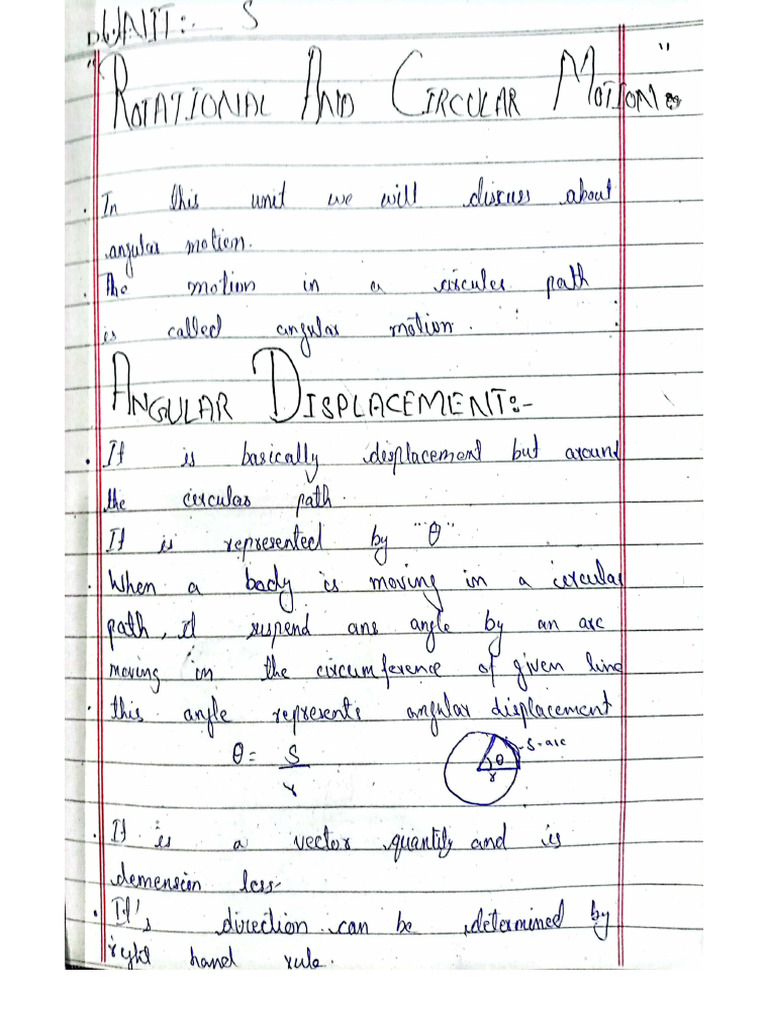 UNIT:- 5
"ROTATIONAL AND CIRCULAR MOTION"
. In this unit we will discuss about
angular motion.
. The motion in a circular path
is called angular motion.
ANGULAR DISPLACEMENT:-
. It is basically displacement but around
the circular path.
It is represented by "θ"
. When a body is moving in a circular
path, it suspend ane angle by an arc
moving in the circumference of given line
. this angle represents angular displacement
θ = S/r
S-arc
θ
r
. It is a vector quantity and is
demension less.
. It's direction can be determined by
right hand rule.